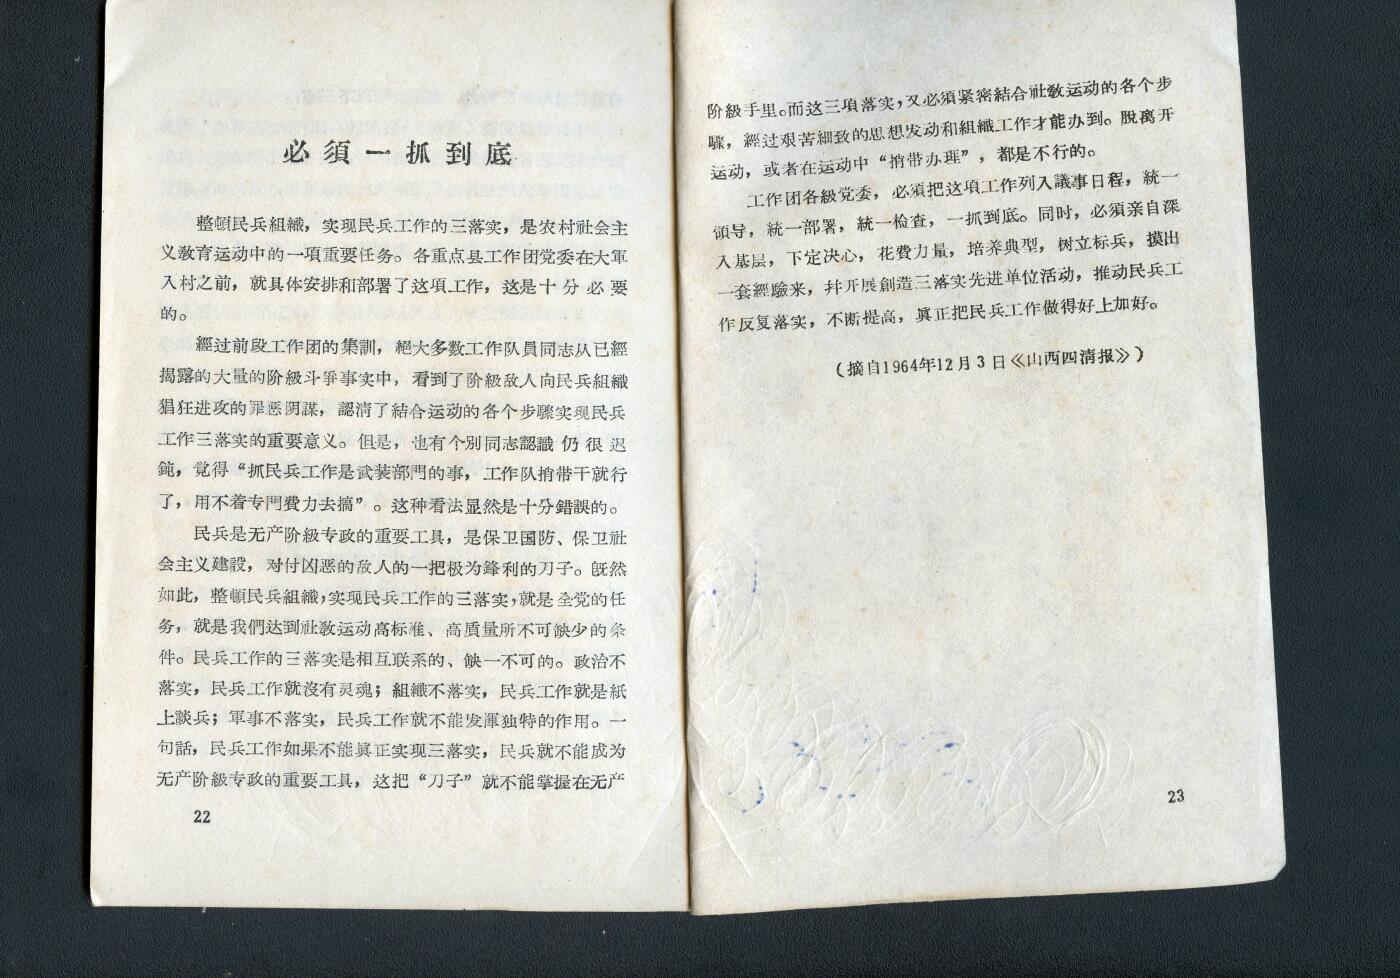 必須一抓到底
整頓民兵組織，实现民兵工作的三落实，是农村社会主
义教育运动中的一項重要任务。各重点县工作团党委在大軍
入村之前，就具体安排和部署了这項工作，这是十分必要
的。
經过前段工作团的集訓，絕大多数工作队員同志从已經
揭露的大量的阶級斗爭事实中，看到了阶級敌人向民兵組織
猖狂进攻的罪恶阴謀，認清了結合运动的各个步驟实现民兵
工作三落实的重要意义。但是，也有个别同志認識仍很迟
鈍，觉得“抓民兵工作是武装部門的事，工作队捎带干就行
了，用不着专門費力去搞”。这种看法显然是十分錯誤的。
民兵是无产阶級专政的重要工具，是保卫国防、保卫社
会主义建設，对付凶恶的敌人的一把极为鋒利的刀子。旣然
如此，整頓民兵組織，实现民兵工作的三落实，就是全党的任
务，就是我們达到社教运动高标准、高质量所不可缺少的条
件。民兵工作的三落实是相互联系的、缺一不可的。政治不
落实，民兵工作就沒有灵魂；組織不落实，民兵工作就是紙
上談兵；軍事不落实，民兵工作就不能发揮独特的作用。一
句話，民兵工作如果不能眞正实现三落实，民兵就不能成为
无产阶級专政的重要工具，这把“刀子”就不能掌握在无产
22
阶級手里。而这三項落实，又必須紧密結合社教运动的各个步
驟，經过艰苦細致的思想发动和組織工作才能办到。脫离开
运动，或者在运动中“捎带办理”，都是不行的。
工作团各級党委，必須把这項工作列入議事日程，統一
領导，統一部署，統一检查，一抓到底。同时，必須亲自深
入基层，下定决心，花費力量，培养典型，树立标兵，摸出
一套經驗来，幷开展創造三落实先进单位活动，推动民兵工
作反复落实，不断提高，眞正把民兵工作做得好上加好。
（摘自1964年12月3日《山西四清报》）
23